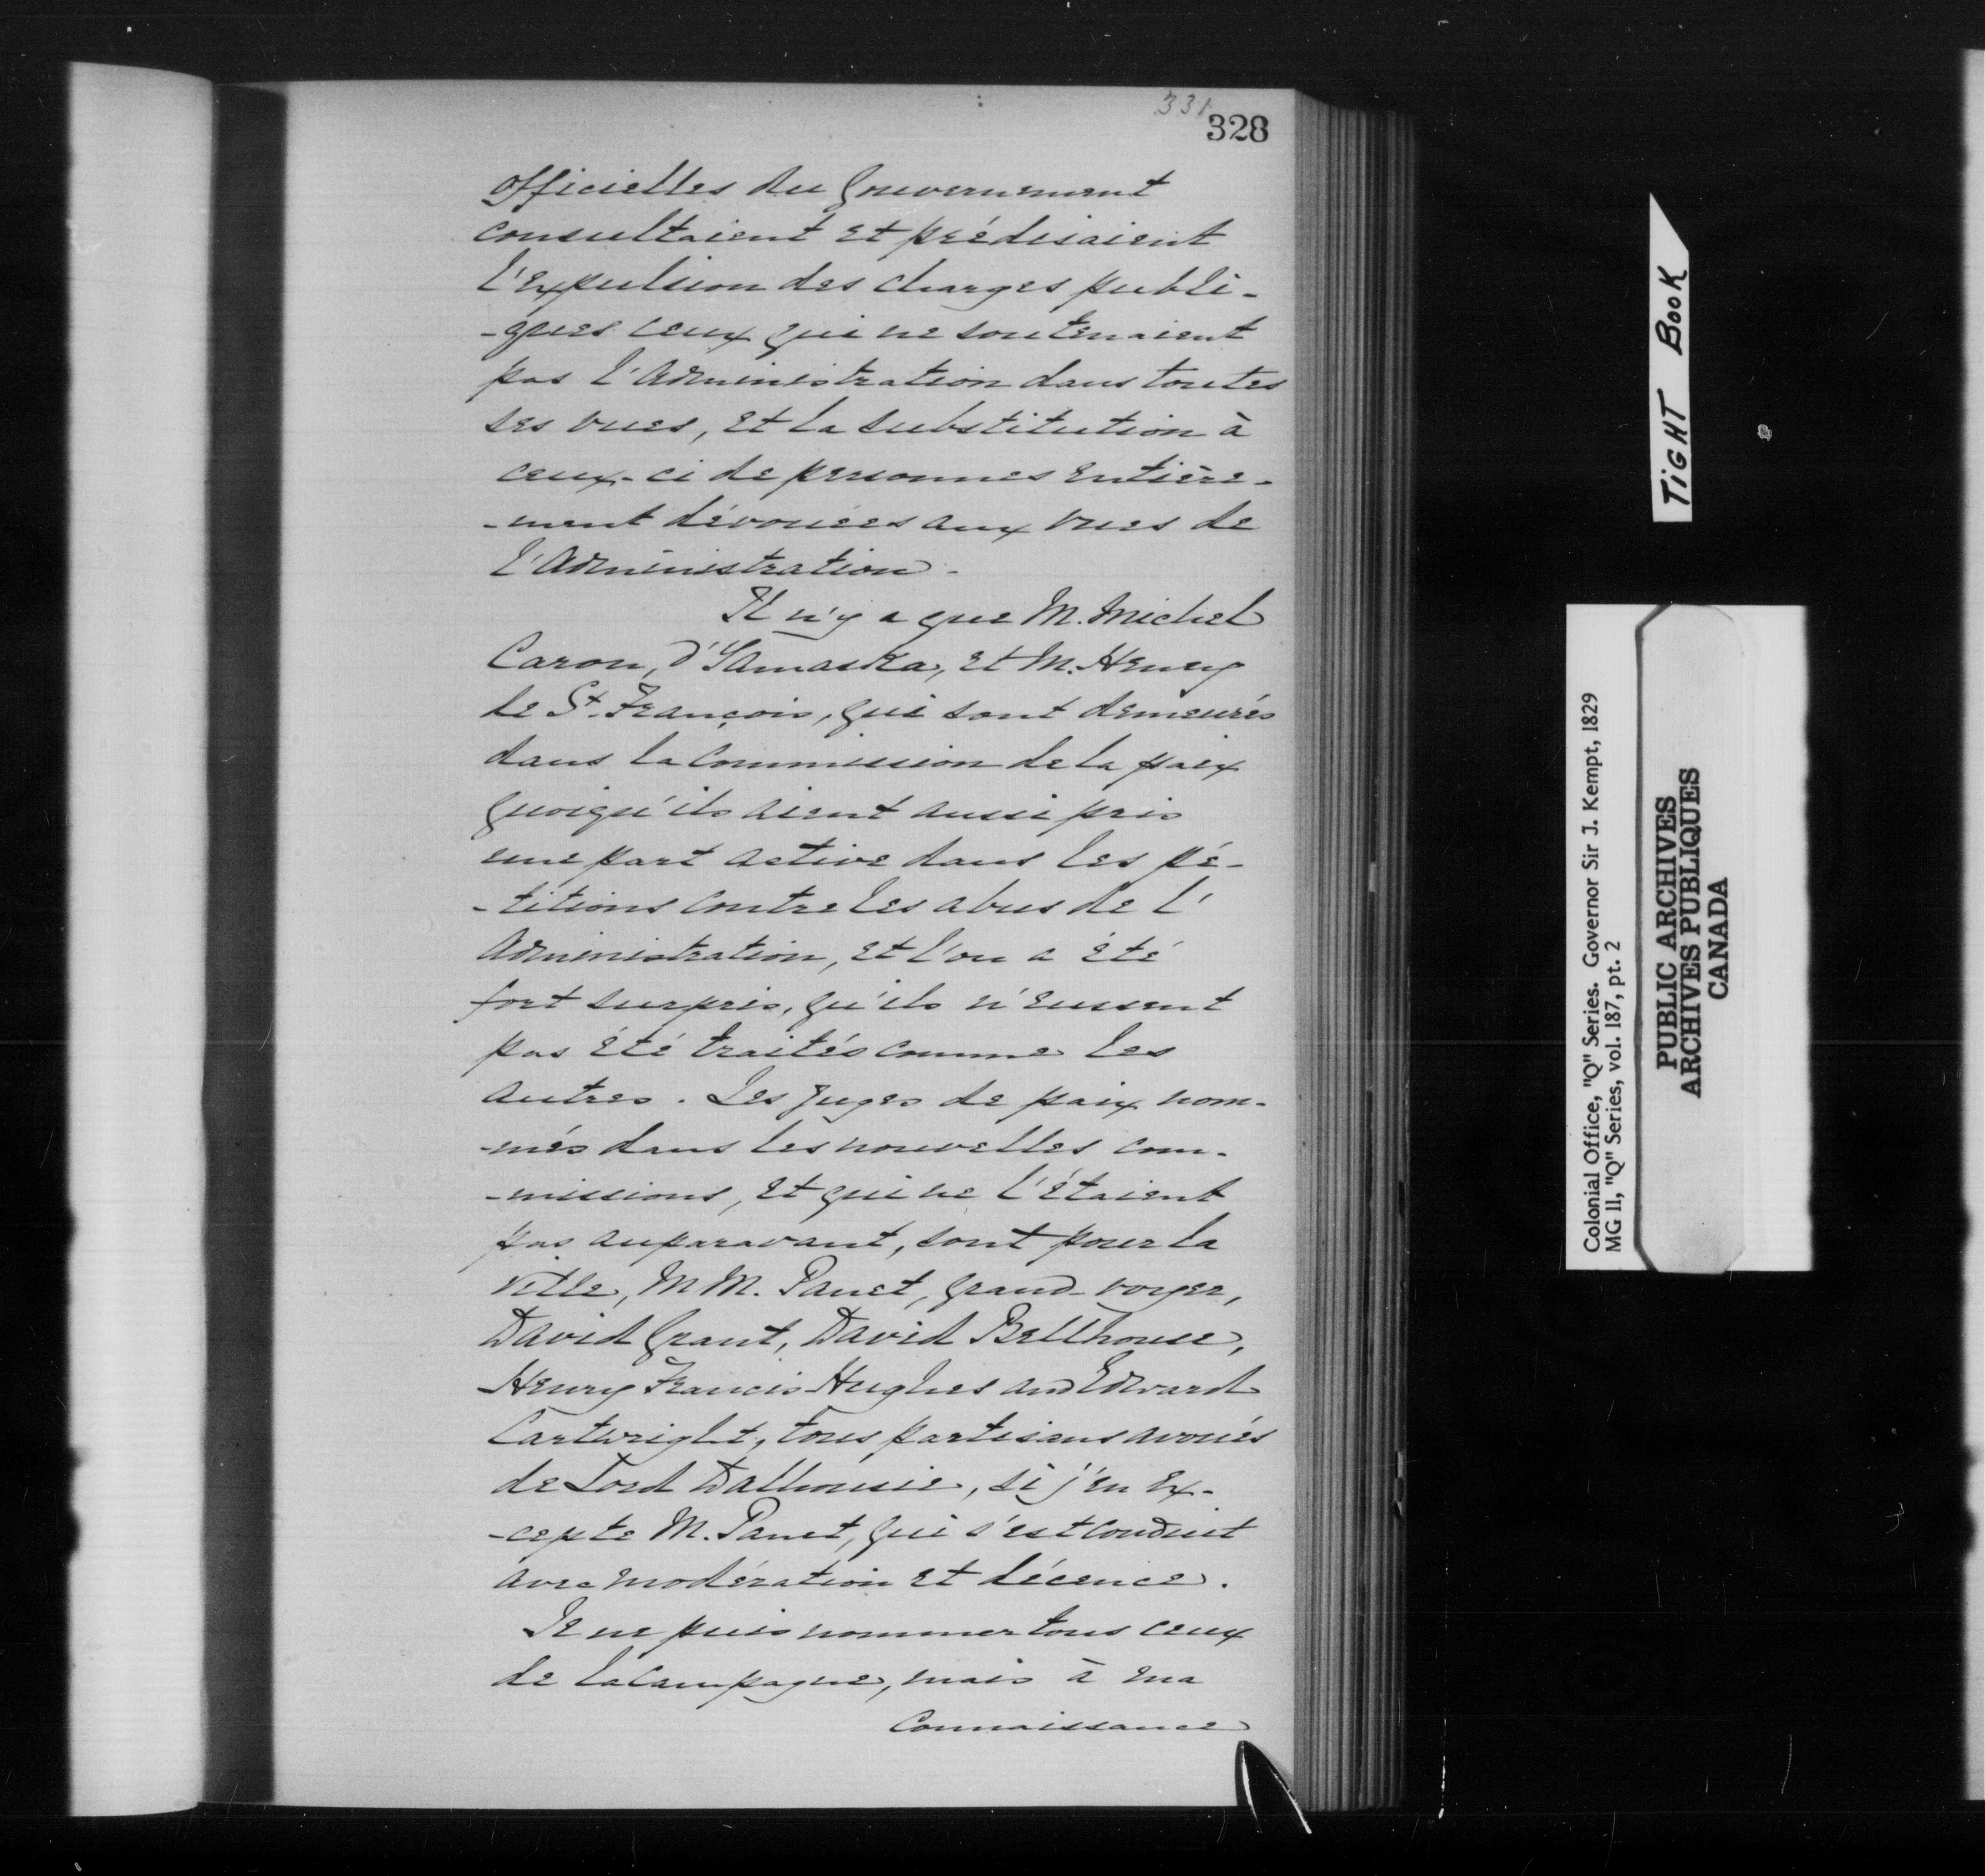 331
328
officielles du Gouvernement
consultaient et prédisaient
l'expulsion des charges publi-
-ques ceux qui ne soutenaient
pas l'Administration dans toutes
ses vues, et la substitution à
ceux-ci de personnes entière-
-ment dévouées aux vues de
l'Administration.
Il n'y a que M. Michel
Caron, d'Yamaska, et M. Henry
de St. François, qui sont demeurés
dans la Commission de la paix
quoiqu'ils aient aussi pris
une part active dans les pé-
-titions contre les abus de l'
Administration, et l'on a été
fort surpris, qu'ils n'eussent
pas été traités comme les
autres. Les Juges de paix nom-
-més dans les nouvelles com-
-missions, et qui ne l'étaient
pas auparavant, sont pour la
ville, M M. Panet, grand-voyer,
David Grant, David Bellhouse,
Henry Francis Hughes and Edward
Cartwright, tous partisans avoués
de Lord Dalhousie, si j'en ex-
-cepte M. Panet, qui s'est conduit
avec modération et décence.
Je ne puis nommer tous ceux
de la Campagne, mais à ma
Connaissance
TIGHT BOOK
Colonial Office, "Q" Series. Governor Sir J. Kempt, 1829
MG 11, "Q" Series, vol. 187, pt. 2
PUBLIC ARCHIVES
ARCHIVES PUBLIQUES
CANADA